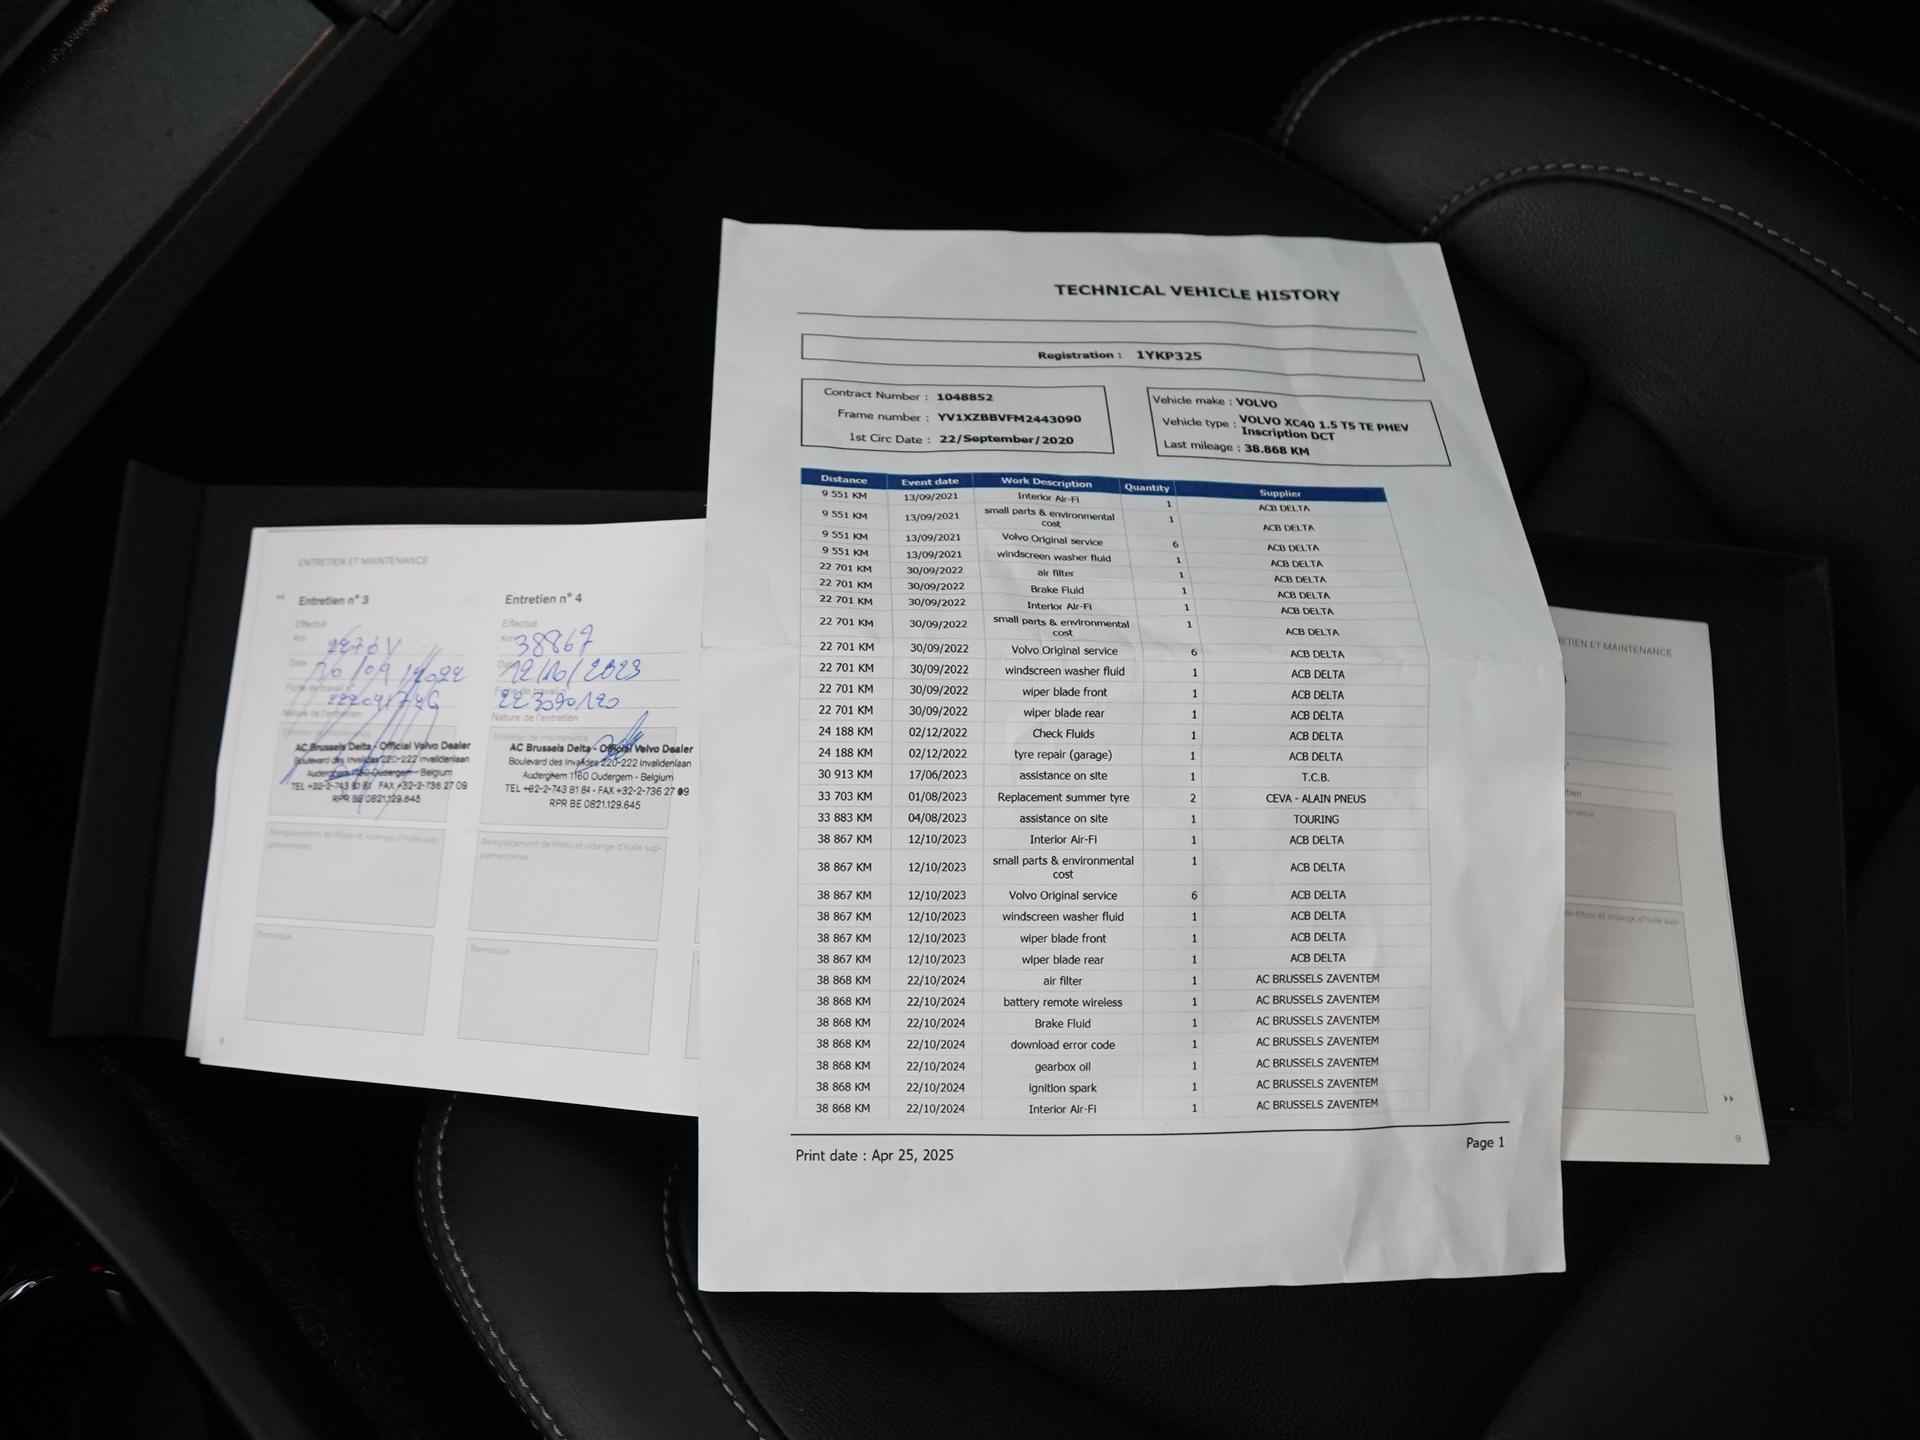 TECHNICAL VEHICLE HISTORY
Registration : 1YKP325
Contract Number : 1048852
Frame number : YV1XZBBVFM2443090
1st Circ Date : 22/September/2020
Vehicle make : VOLVO
Vehicle type : VOLVO XC40 1.5 T5 TE PHEV
Inscription DCT
Last mileage : 38.868 KM
Distance Event date Work Description Quantity Supplier
9 551 KM 13/09/2021 Interior Air-Fi 1 ACB DELTA
9 551 KM 13/09/2021 small parts & environmental cost 1 ACB DELTA
9 551 KM 13/09/2021 Volvo Original service 6 ACB DELTA
9 551 KM 13/09/2021 windscreen washer fluid 1 ACB DELTA
22 701 KM 30/09/2022 air filter 1 ACB DELTA
22 701 KM 30/09/2022 Brake Fluid 1 ACB DELTA
22 701 KM 30/09/2022 Interior Air-Fi 1 ACB DELTA
22 701 KM 30/09/2022 small parts & environmental cost 1 ACB DELTA
22 701 KM 30/09/2022 Volvo Original service 6 ACB DELTA
22 701 KM 30/09/2022 windscreen washer fluid 1 ACB DELTA
22 701 KM 30/09/2022 wiper blade front 1 ACB DELTA
22 701 KM 30/09/2022 wiper blade rear 1 ACB DELTA
24 188 KM 02/12/2022 Check Fluids 1 ACB DELTA
24 188 KM 02/12/2022 tyre repair (garage) 1 ACB DELTA
30 913 KM 17/06/2023 assistance on site 1 T.C.B.
33 703 KM 01/08/2023 Replacement summer tyre 2 CEVA - ALAIN PNEUS
33 883 KM 04/08/2023 assistance on site 1 TOURING
38 867 KM 12/10/2023 Interior Air-Fi 1 ACB DELTA
38 867 KM 12/10/2023 small parts & environmental cost 1 ACB DELTA
38 867 KM 12/10/2023 Volvo Original service 6 ACB DELTA
38 867 KM 12/10/2023 windscreen washer fluid 1 ACB DELTA
38 867 KM 12/10/2023 wiper blade front 1 ACB DELTA
38 867 KM 12/10/2023 wiper blade rear 1 ACB DELTA
38 868 KM 22/10/2024 air filter 1 AC BRUSSELS ZAVENTEM
38 868 KM 22/10/2024 battery remote wireless 1 AC BRUSSELS ZAVENTEM
38 868 KM 22/10/2024 Brake Fluid 1 AC BRUSSELS ZAVENTEM
38 868 KM 22/10/2024 download error code 1 AC BRUSSELS ZAVENTEM
38 868 KM 22/10/2024 gearbox oil 1 AC BRUSSELS ZAVENTEM
38 868 KM 22/10/2024 ignition spark 1 AC BRUSSELS ZAVENTEM
38 868 KM 22/10/2024 Interior Air-Fi 1 AC BRUSSELS ZAVENTEM
Print date : Apr 25, 2025
Page 1
ENTRETIEN ET MAINTENANCE
Entretien n° 3
Effectué
Date
Nature de l'entretien
AC Brussels Delta - Official Volvo Dealer
Boulevard des Invalides 220-222 Invalidenlaan
Auderghem 1160 Oudergem - Belgium
TEL +32-2-743 81 84 FAX +32-2-736 27 09
RPR BE 0821.129.645
Remarque
Entretien n° 4
Effectué
38867
12/10/2023
Nature de l'entretien
AC Brussels Delta - Official Volvo Dealer
Boulevard des Invalides 220-222 Invalidenlaan
Auderghem 1160 Oudergem - Belgium
TEL +32-2-743 81 84 - FAX +32-2-736 27 09
RPR BE 0821.129.645
Remplacement de filtre et vidange d'huile sup-
plémentaires
Remarque
ET MAINTENANCE
9